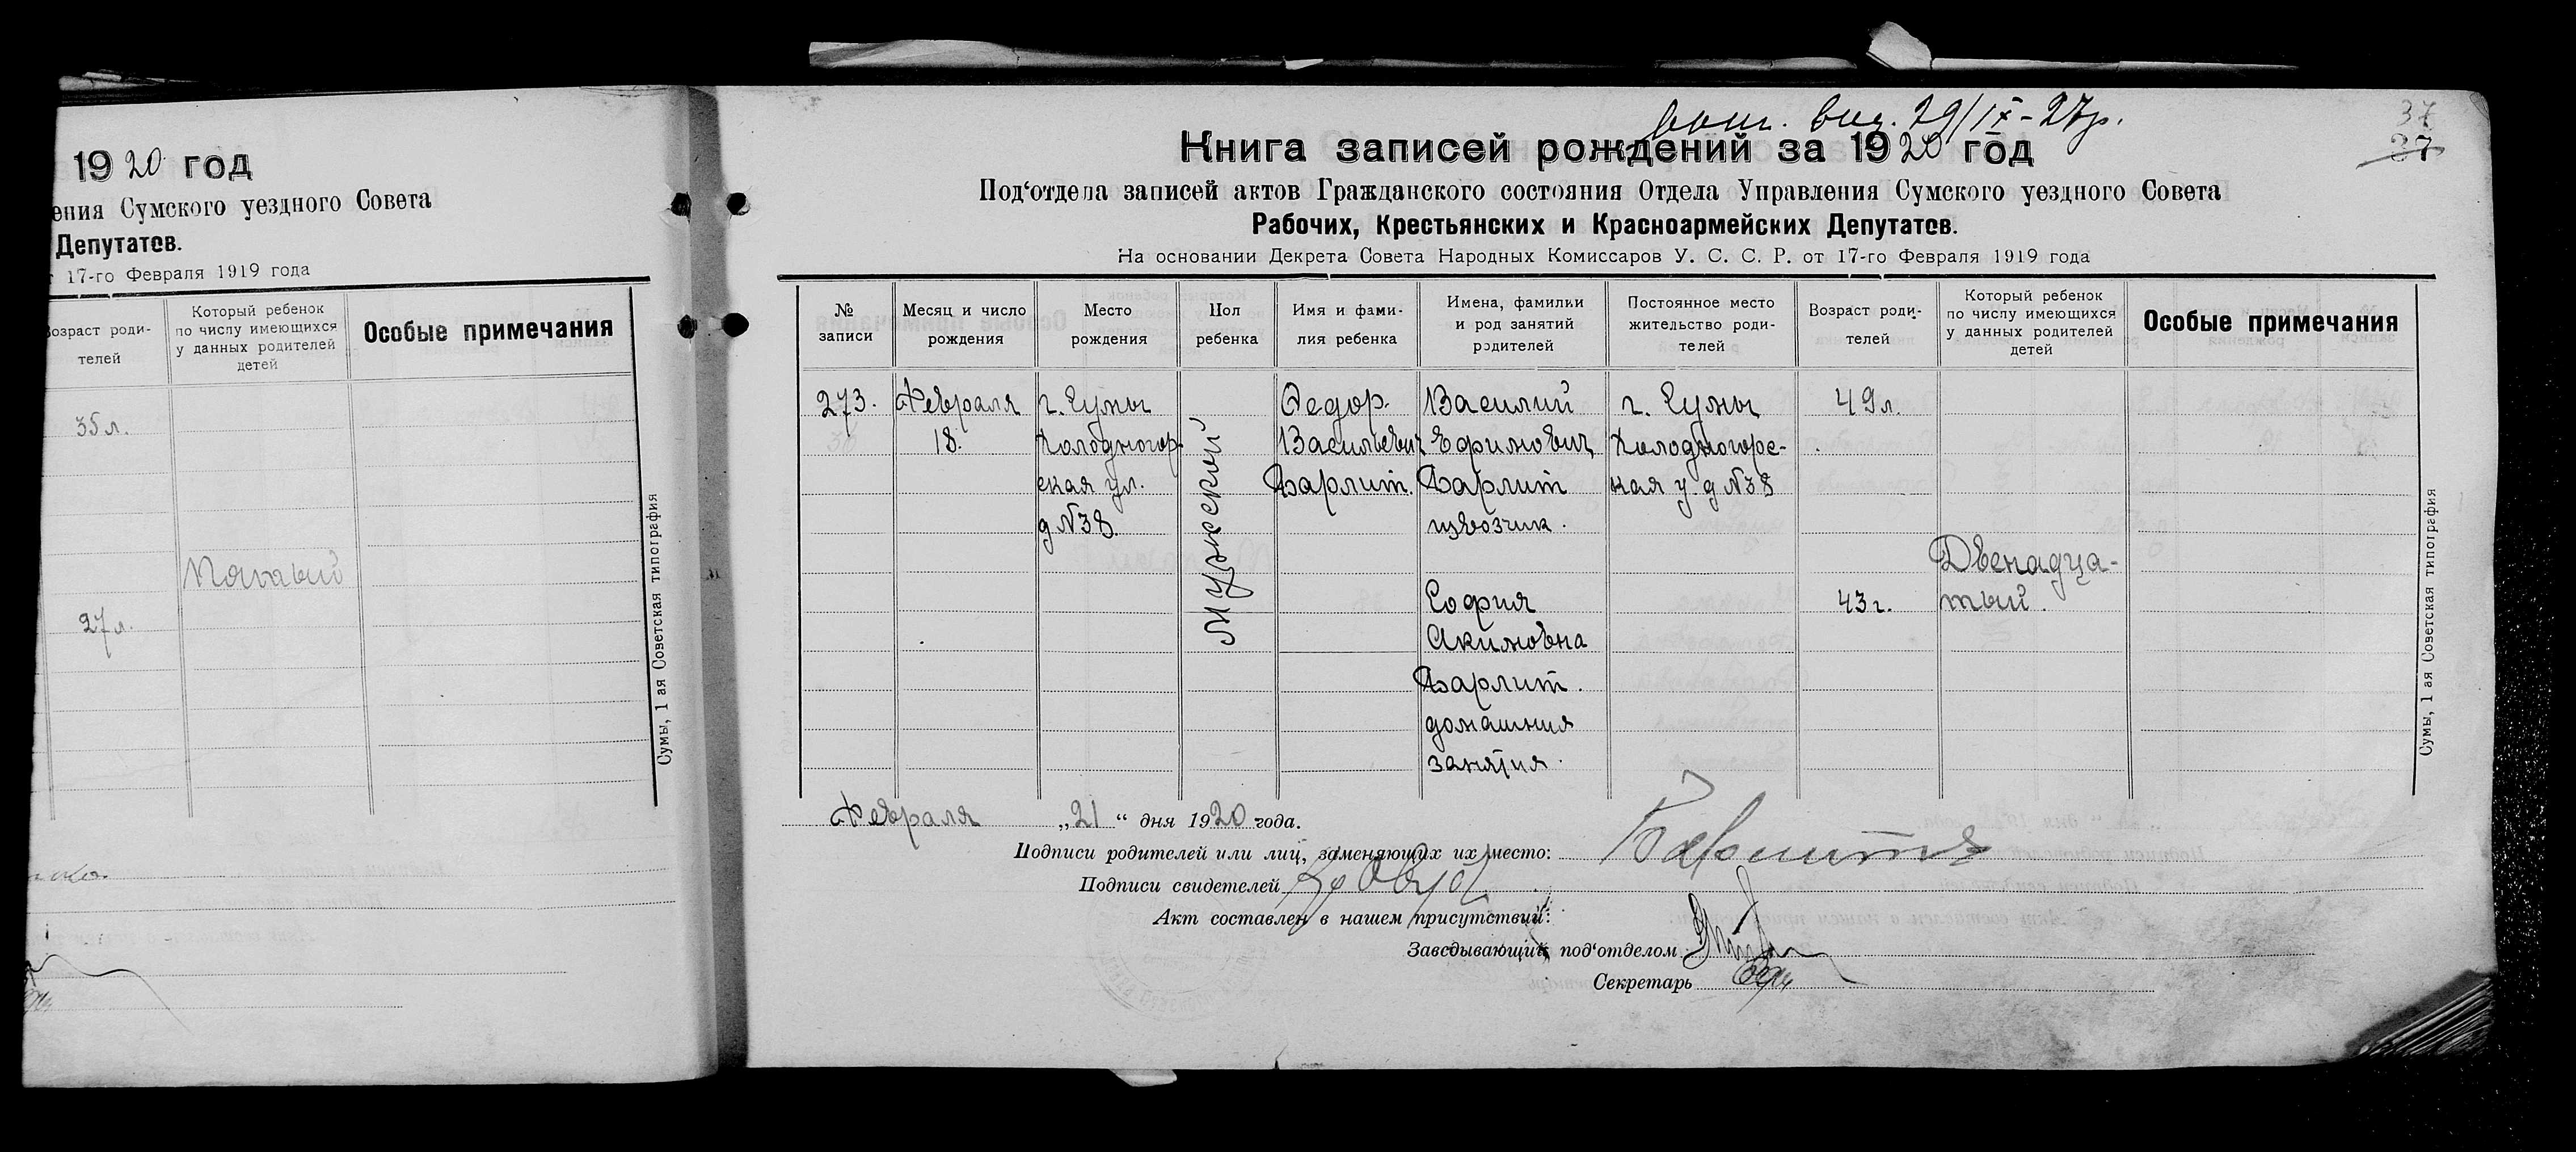 1920 год
ения Сумского уездного Совета
Депутатов.
т 17-го Февраля 1919 года
Возраст роди-
телей
Который ребенок
по числу имеющихся
у данных родителей
детей
Особые примечания
35 л.
Пятый
27 л.
Сумы, 1 ая Советская типография
29/IX-27р.
37
37
Книга записей рождений за 1920 год
Под'отдела записей актов Гражданского состояния Отдела Управления Сумского уездного Совета
Рабочих, Крестьянских и Красноармейских Депутатов.
На основании Декрета Совета Народных Комиссаров У. С. С. Р. от 17-го Февраля 1919 года
№
записи
Месяц и число
рождения
Место
рождения
Пол
ребенка
Имя и фами-
лия ребенка
Имена, фамилии
и род занятий
родителей
Постоянное место
жительство роди-
телей
Возраст роди-
телей
Который ребенок
по числу имеющихся
у данных родителей
детей
Особые примечания
273.
Февраля
18.
г. Сумы
Холодногор-
ская ул.
д №38.
Мужской
Федор.
Васильевич
Барлит.
Василий
Ефимович
Барлит
извозчик.
София
Акимовна
Барлит.
домашния
занятия.
г. Сумы
Холодногорс-
кая у. д №38
49 л.
43 г.
Двенадца-
тый.
Сумы, 1 ая Советская типография
Февраля „21" дня 1920 года.
Подписи родителей или лиц, заменяющих их место:
Подписи свидетелей
Акт составлен в нашем присутствии:
Заведывающий под'отделом
Секретарь